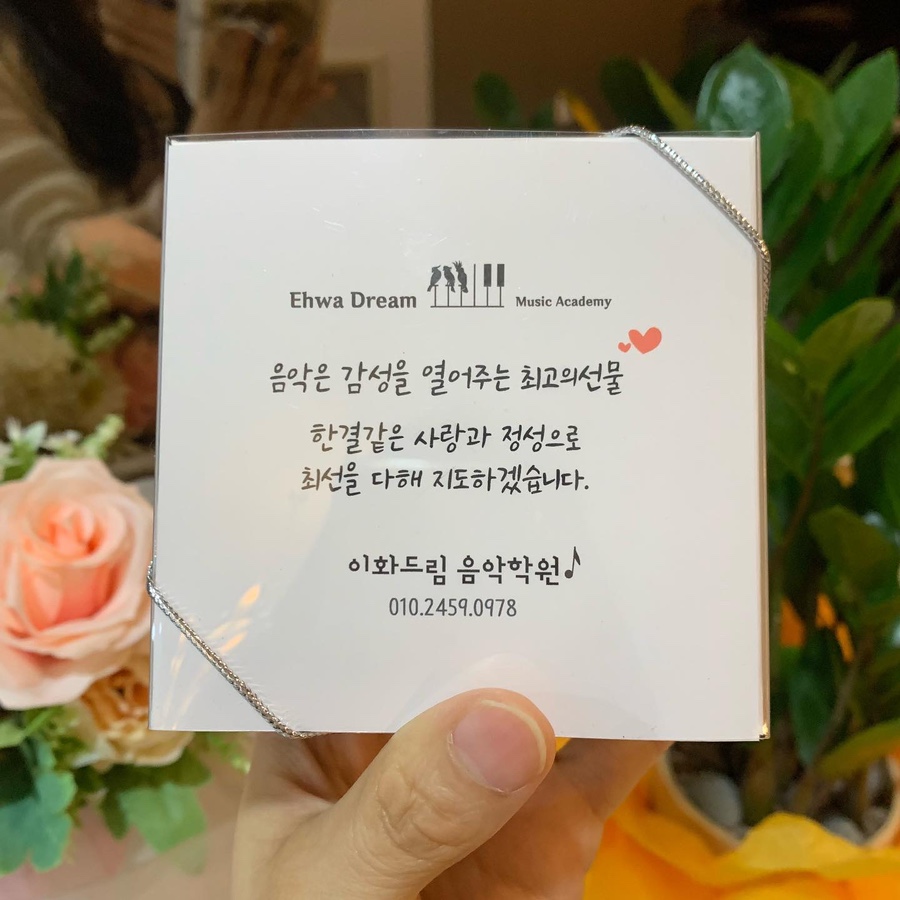 Ehwa Dream Music Academy
음악은 감성을 열어주는 최고의선물
한결같은 사랑과 정성으로
최선을 다해 지도하겠습니다.
이화드림 음악학원
010.2459.0978